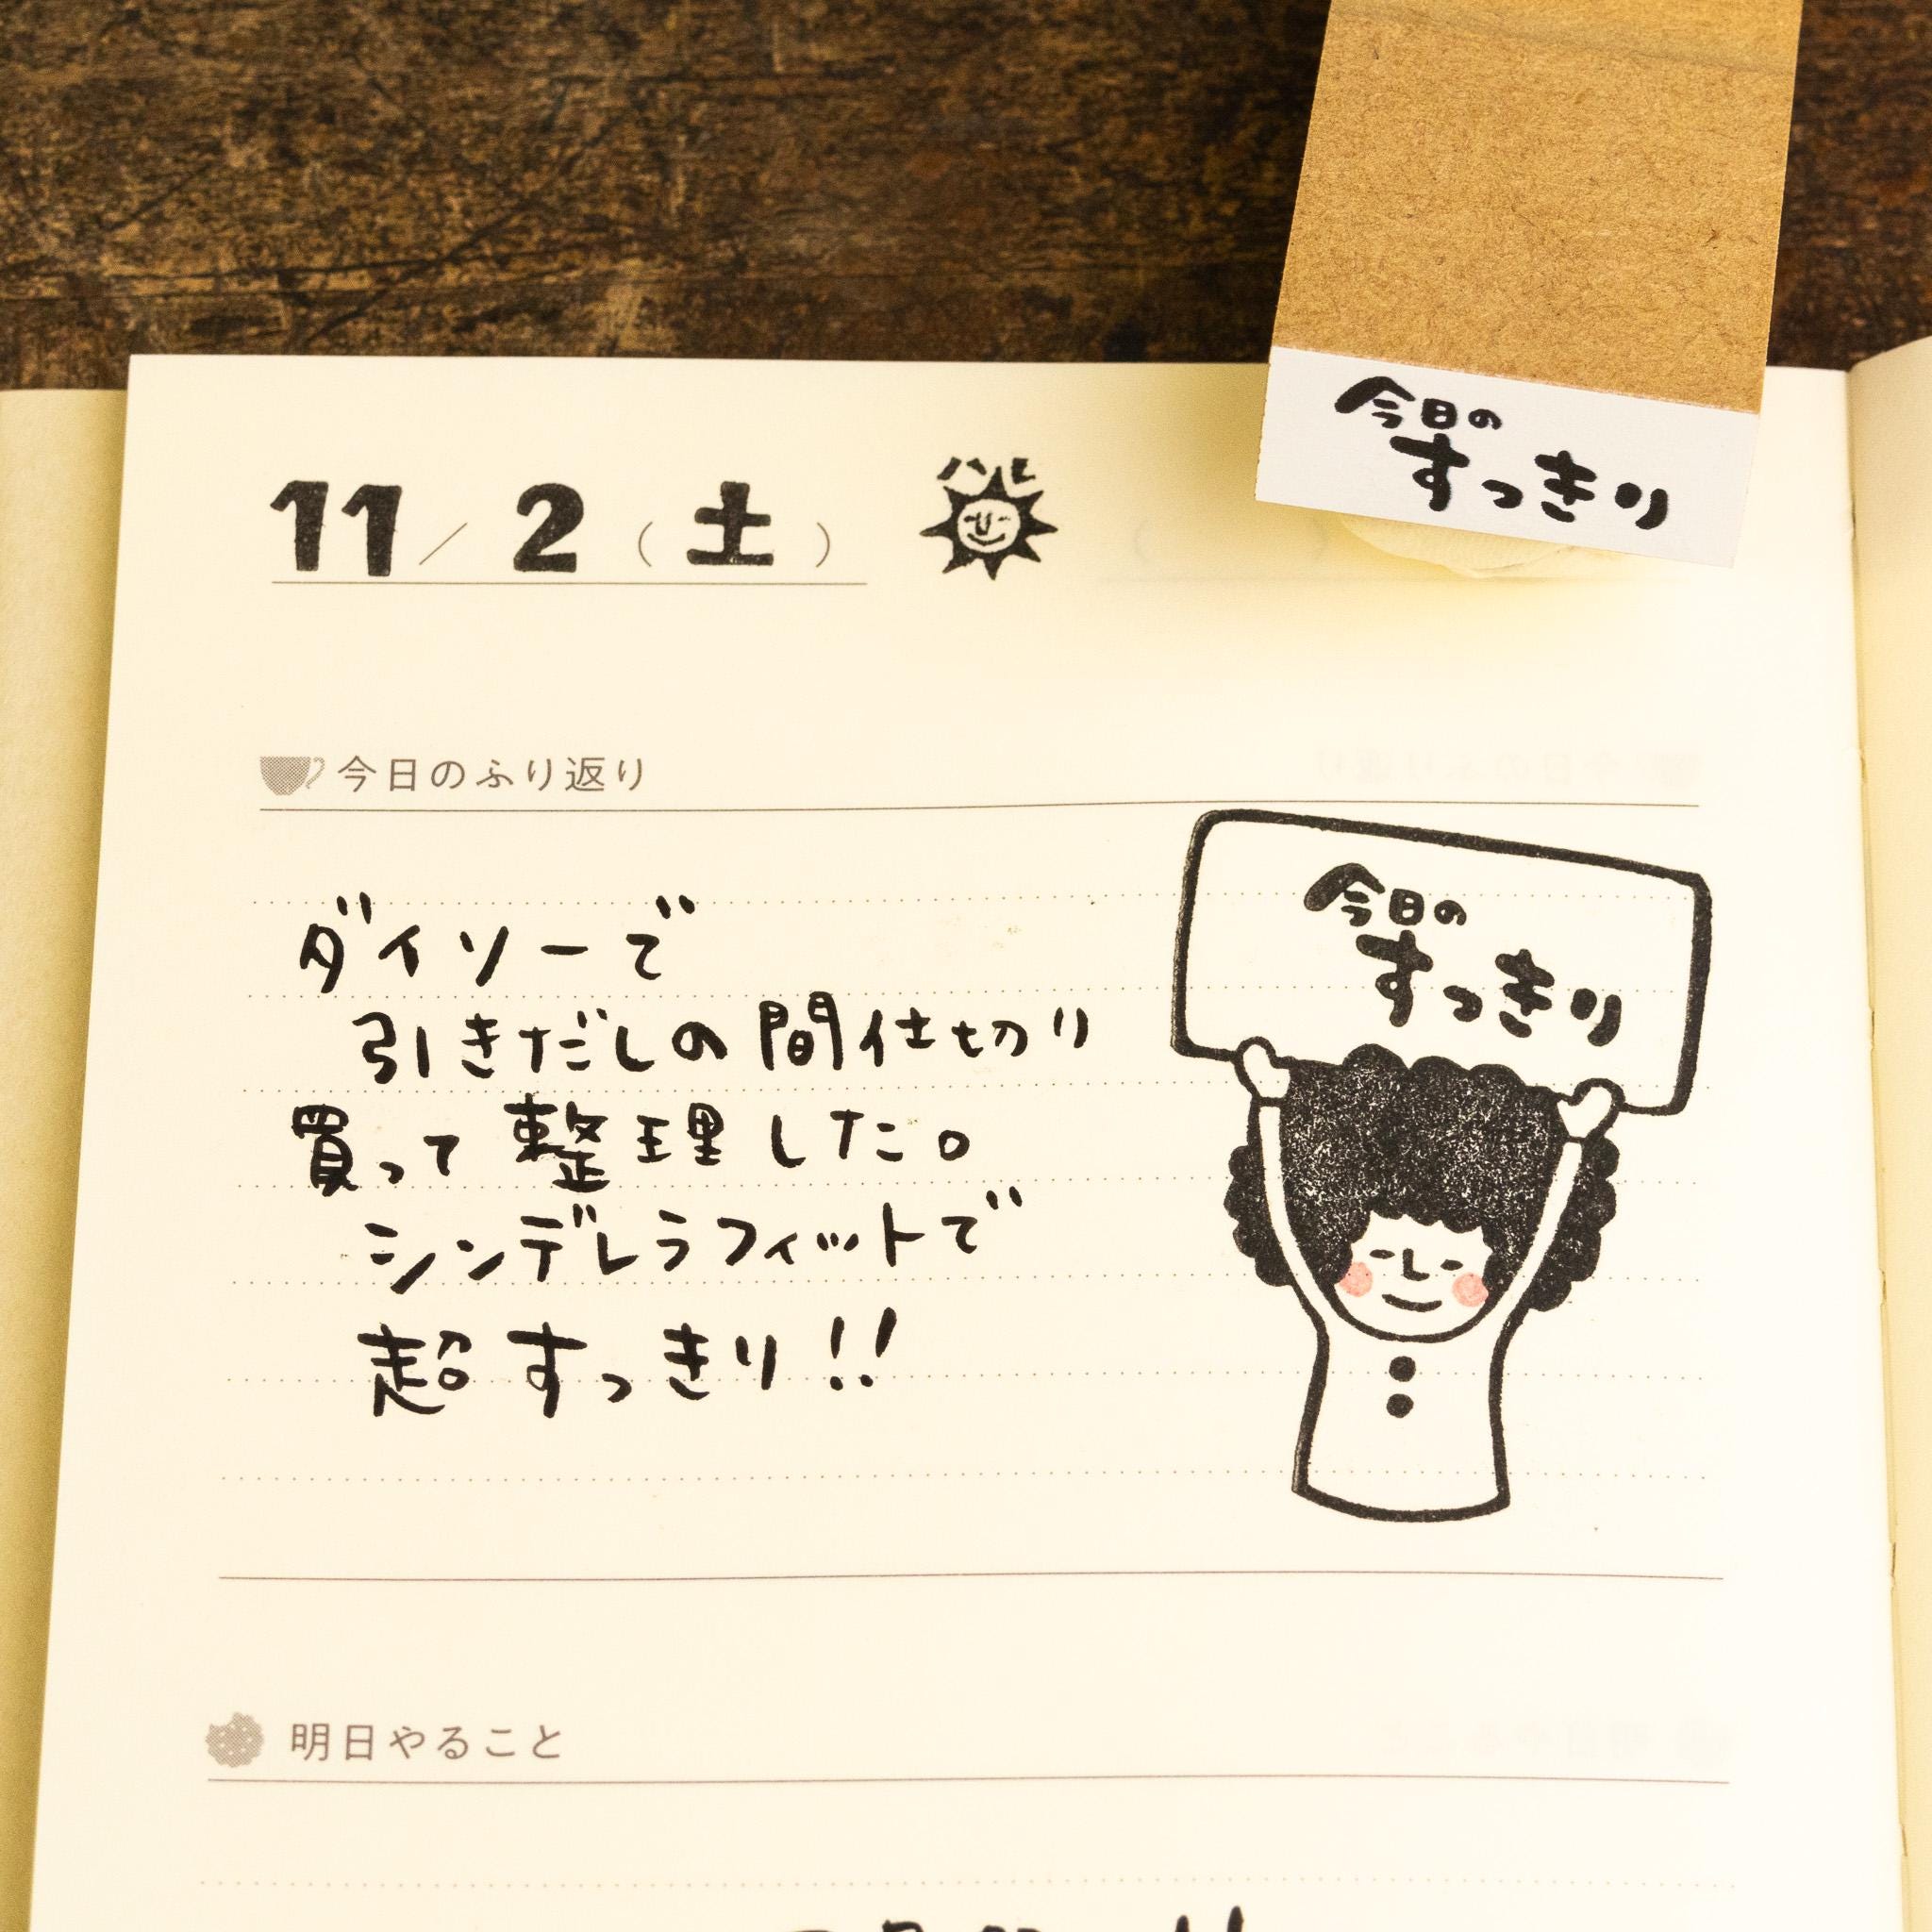 今日の
すっきり
11／2（土）
ハレ
今日のふり返り
今日の
すっきり
ダイソーで
引きだしの間仕切り
買って整理した。
シンデレラフィットで
超すっきり!!
明日やること